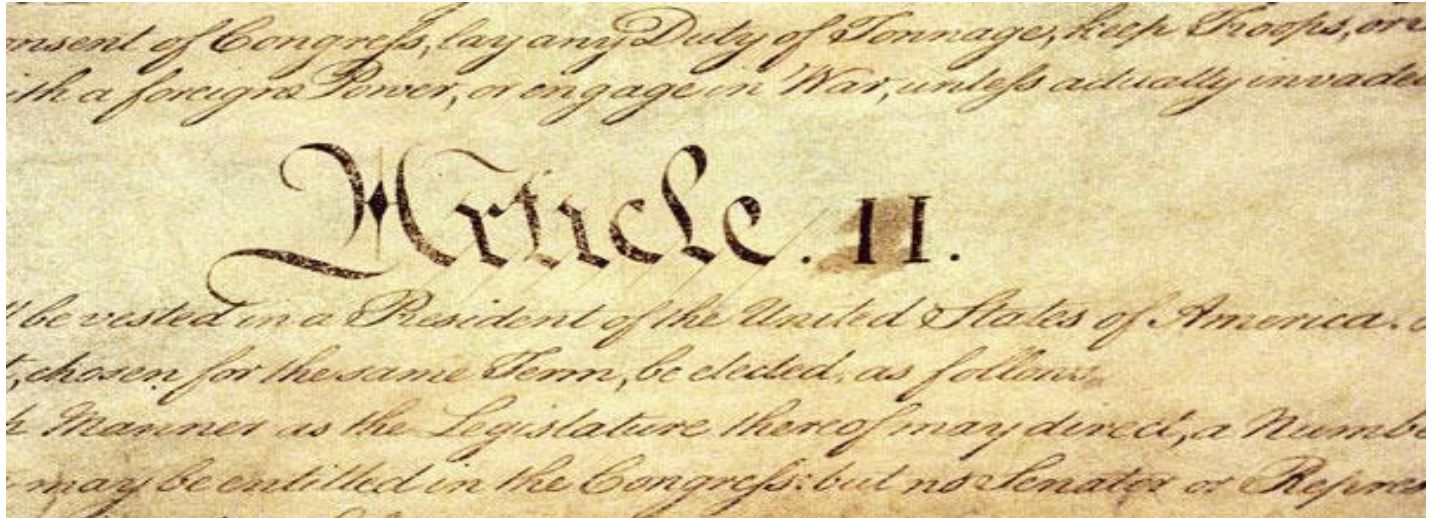 onsent of Congreſs, lay any Duty of Tonnage, keep Troops, or
ith a foreign Power, or engage in War, unleſs actually invade
Article. II.
l be vested in a President of the United States of America.
t, chosen for the same Term, be elected, as follows
h Manner as the Legislature thereof may direct, a Numbe
may be entitled in the Congreſs: but no Senator or Repres